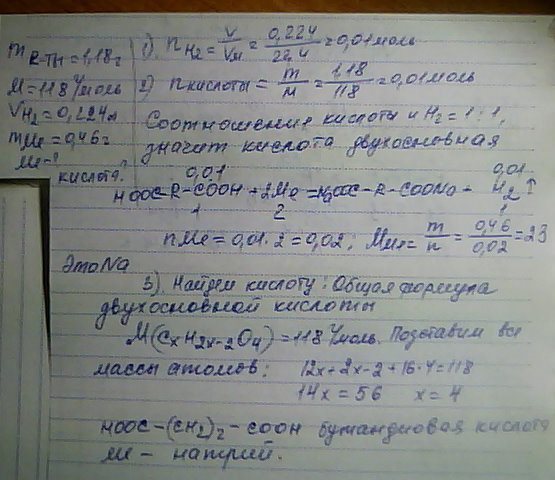 m к-ты = 1,18г
M = 118 г/моль
V H₂ = 0,224л
m Me = 0,46г
Me - ?
кислота ?
1). n H₂ = V/Vм = 0,224/22,4 = 0,01 моль
2) n кислоты = m/M = 1,18/118 = 0,01 моль
Соотношение кислоты и H₂ = 1 : 1,
значит кислота двухосновная
0,01 0,01
HOOC-R-COOH + 2Me = NaOOC-R-COONa + H₂↑
1 2 1
nMe = 0,01·2 = 0,02; Mме = m/n = 0,46/0,02 = 23
Это Na
3). Найдем кислоту: Общая формула
двухосновной кислоты
M(CxH2x-2O4) = 118 г/моль. Подставим все
массы атомов: 12x + 2x - 2 + 16·4 = 118
14x = 56 x = 4
HOOC-(CH₂)₂-COOH бутандиовая кислота
Me - натрий.